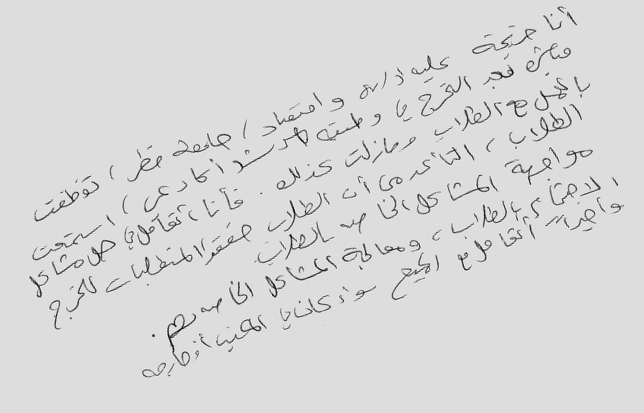 أنا خريجة كلية إدارة واقتصاد / جامعة قطر، توظفت
مباشرة بعد التخرج في وظيفة مرشد أكاديمي / استمتعت
بالعمل مع الطلاب ومازلت كذلك. فأنا أتعامل في حل مشاكل
الطلاب، التأكد من أن الطلاب حققوا المتطلبات للتخرج
مواجهة المشاكل الخاصة بالطلاب
الاجتماع بالطلاب، ومعالجة المشاكل الخاصة بهم.
وأخيراً أتعامل مع الجميع سواء كان في المكتب أو خارجه